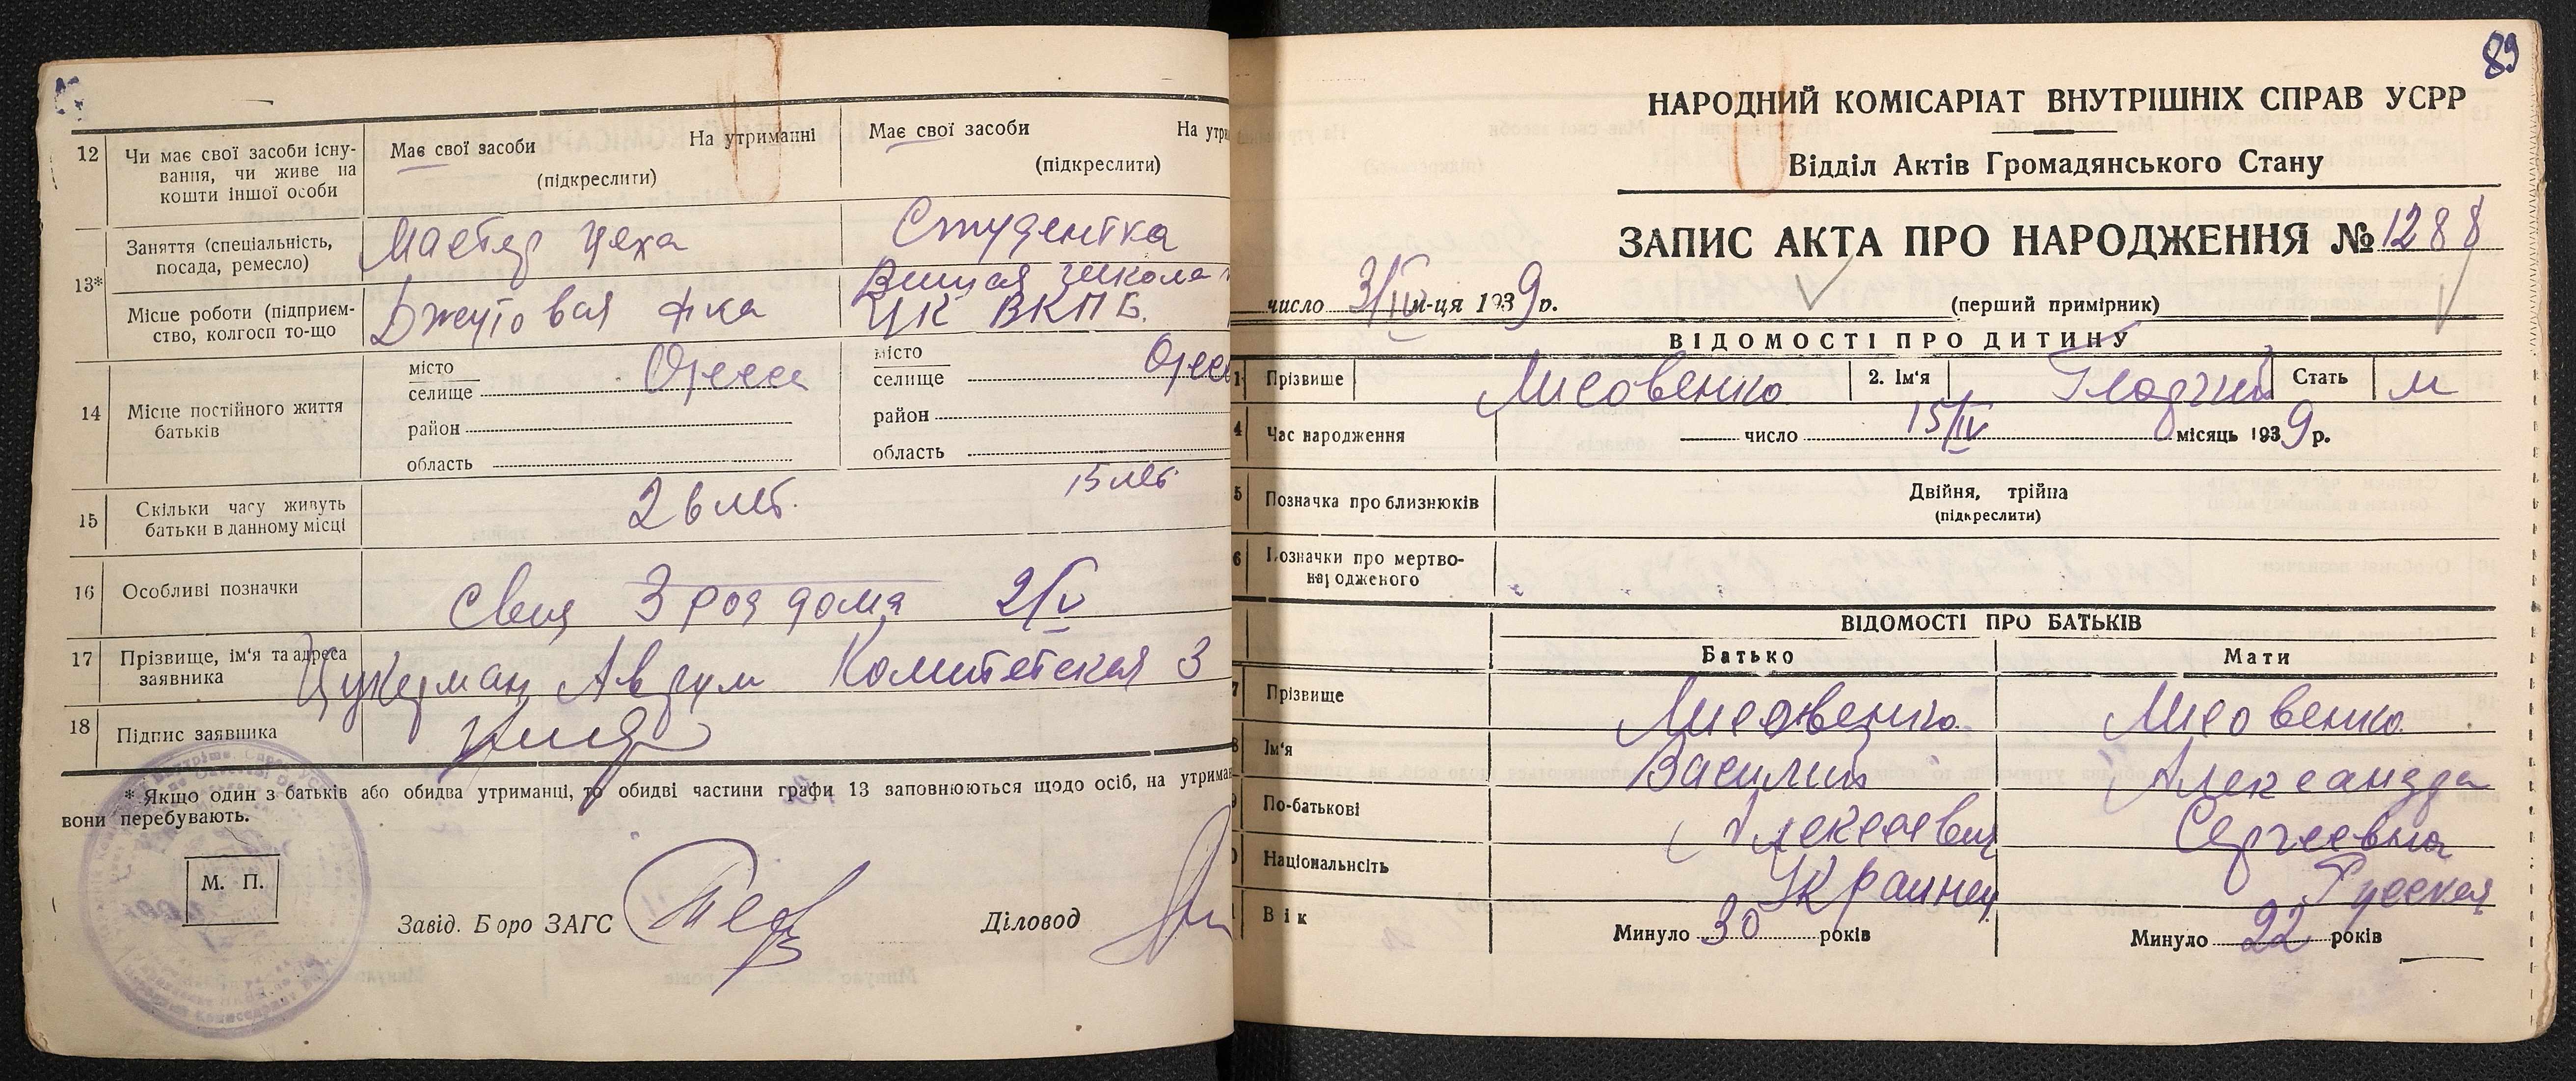 12
Чи має свої засоби існу-
вання, чи живе на
кошти іншої особи
Має свої засоби На утриманні
(підкреслити)
Має свої засоби На утри
(підкреслити)
13*
Заняття (спеціальність,
посада, ремесло)
Мастер цеха
Студентка
Місце роботи (підприєм-
ство, колгосп то-що
Джутовая ф-ка
Высшая школа
ЦК ВКПБ.
14
Місце постійного життя
батьків
місто
селище Одесса
район
область
місто
селище Одесс
район
область
15
Скільки часу живуть
батьки в данному місці
2 в лет.
15 лет
16
Особливі позначки
Свид 3 род дома 2/IV
17
Прізвище, ім'я та адреса
заявника
Цукерман Аврум Комитетская 3
18
Підпис заявника
* Якщо один з батьків або обидва утриманці, то обидві частини графи 13 заповнюються щодо осіб, на утриман
вони перебувають.
М. П.
Завід. Бюро ЗАГС
Діловод
89
НАРОДНИЙ КОМІСАРІАТ ВНУТРІШНІХ СПРАВ УСРР
Відділ Актів Громадянського Стану
ЗАПИС АКТА ПРО НАРОДЖЕННЯ № 1288
число 3/IV м-ця 1939 р.
(перший примірник)
ВІДОМОСТІ ПРО ДИТИНУ
1 Прізвище Лисовенко 2. Ім'я Стать м
4 Час народження число 15/IV місяць 1939 р.
5 Позначка про близнюків Двійня, трійня
(підкреслити)
6 Позначки про мертво-
народженого
ВІДОМОСТІ ПРО БАТЬКІВ
Батько Мати
7 Прізвище Лисовенко Лисовенко
8 Ім'я Василий Александра
9 По-батькові Алексеевич Сергеевна
0 Національність Украинец Русская
1 Вік Минуло 30 років Минуло 22 років